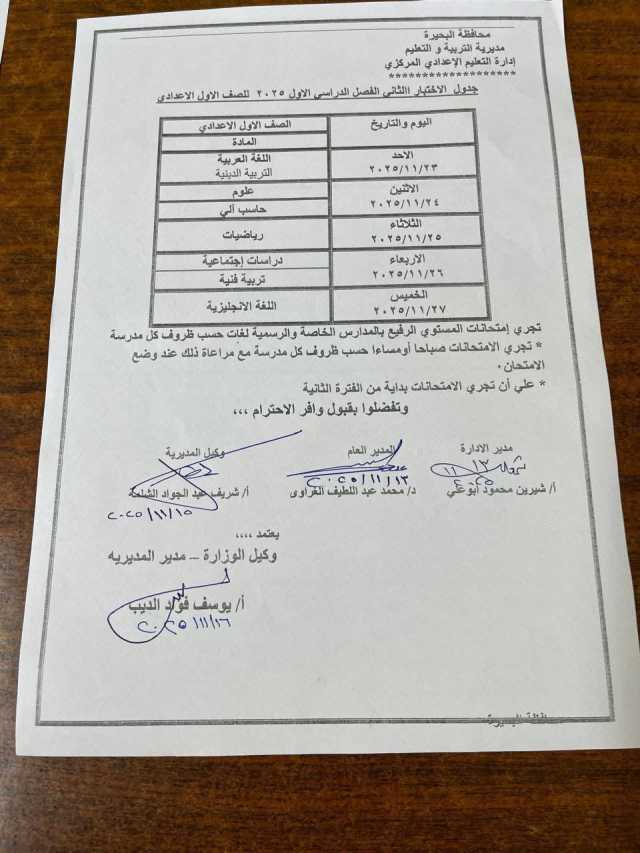 محافظة البحيرة
مديرية التربية و التعليم
إدارة التعليم الإعدادي المركزي
*******************
جدول الاختبار الثاني الفصل الدراسي الاول ٢٠٢٥ للصف الاول الاعدادي
اليوم والتاريخ الصف الاول الاعدادي
المادة
الاحد اللغة العربية
٢٠٢٥/١١/٢٣ التربية الدينية
الاثنين علوم
٢٠٢٥/١١/٢٤ حاسب آلي
الثلاثاء رياضيات
٢٠٢٥/١١/٢٥
الاربعاء دراسات إجتماعية
٢٠٢٥/١١/٢٦ تربية فنية
الخميس اللغة الانجليزية
٢٠٢٥/١١/٢٧
تجري إمتحانات المستوي الرفيع بالمدارس الخاصة والرسمية لغات حسب ظروف كل مدرسة
* تجري الامتحانات صباحا أومساءا حسب ظروف كل مدرسة مع مراعاة ذلك عند وضع
الامتحان٠
* علي أن تجري الامتحانات بداية من الفترة الثانية
وتفضلوا بقبول وافر الاحترام ،،،
مدير الادارة المدير العام وكيل المديرية
أ/ شيرين محمود أبوعلي د/ محمد عبد اللطيف الغراوى أ/ شريف عبد الجواد الشلمة
٢٠٢٥/١١/١٣ ٢٠٢٥/١١/١٥
يعتمد ،،،،
وكيل الوزارة – مدير المديريه
أ/ يوسف فؤاد الديب
٢٠٢٥/١١/١٦
محافظة البحيرة